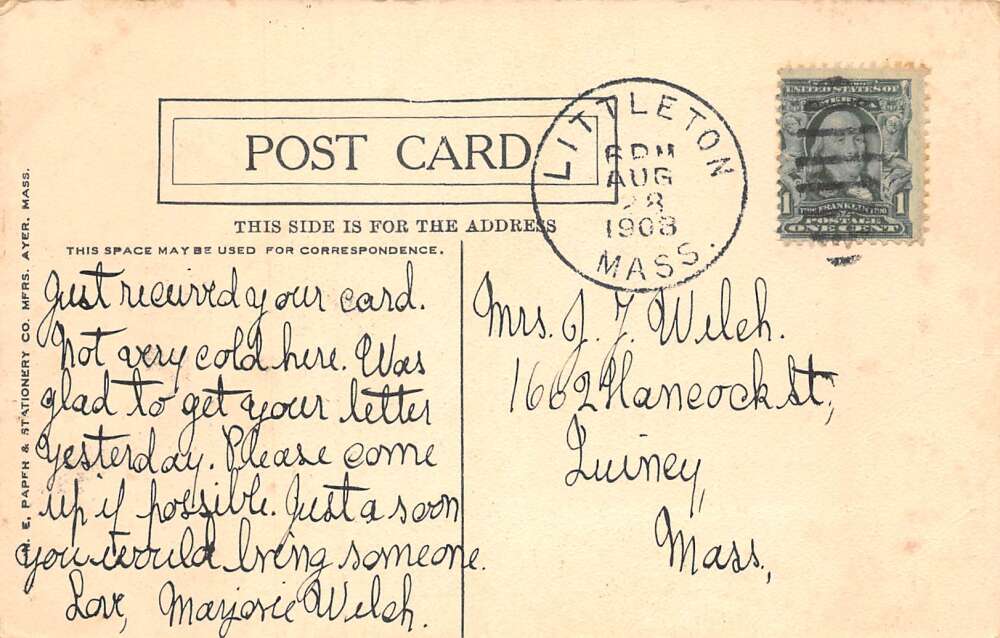 POST CARD
THIS SIDE IS FOR THE ADDRESS
THIS SPACE MAY BE USED FOR CORRESPONDENCE.
LITTLETON
6 PM
AUG
28
1908
MASS.
UNITED STATES OF
FRANKLIN
POSTAGE
1 ONE CENT 1
N. E. PAPER & STATIONERY CO. MFRS. AYER. MASS.
Just received your card.
Not very cold here. Was
glad to get your letter
yesterday. Please come
up if possible. Just a soon
you would bring someone.
Love, Marjorie Welch.
Mrs. J. F. Welch.
1662 Hancock St,
Quincy,
Mass.,